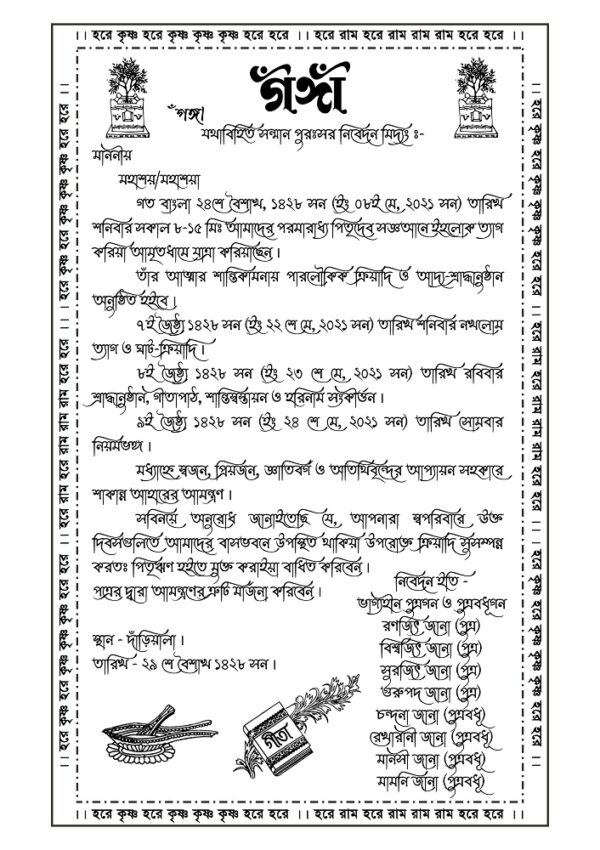 ।। হরে কৃষ্ণ হরে কৃষ্ণ কৃষ্ণ কৃষ্ণ হরে হরে ।। হরে রাম হরে রাম রাম রাম হরে হরে ।।
গঙ্গা
ঁগঙ্গা
যথাবিহিত সন্মান পুরঃসর নিবেদন মিদ্যং ঃ-
মাননীয়
মহাশয়/মহাশয়া
গত বাংলা ২৪শে বৈশাখ, ১৪২৮ সন (ইং ০৮ই মে, ২০২১ সন) তারিখ
শনিবার সকাল ৮-১৫ মিঃ আমাদের পরমারাধ্য পিতৃদেব সজ্ঞানে ইহলোক ত্যাগ
করিয়া অমৃতধামে যাত্রা করিয়াছেন।
তাঁর আত্মার শান্তিকামনায় পারলৌকিক ক্রিয়াদি ও আদ্য-শ্রাদ্ধানুষ্ঠান
অনুষ্ঠিত হইবে।
৭ই জৈষ্ঠ্য ১৪২৮ সন (ইং ২২ শে মে, ২০২১ সন) তারিখ শনিবার নখলোম
ত্যাগ ও ঘাট-ক্রিয়াদি।
৮ই জৈষ্ঠ্য ১৪২৮ সন (ইং ২৩ শে মে, ২০২১ সন) তারিখ রবিবার
শ্রাদ্ধানুষ্ঠান, গীতাপাঠ, শান্তিস্বস্ত্যায়ন ও হরিনাম সংকীর্ত্তন।
৯ই জৈষ্ঠ্য ১৪২৮ সন (ইং ২৪ শে মে, ২০২১ সন) তারিখ সোমবার
নিয়মভঙ্গ।
মধ্যাহ্নে স্বজন, প্রিয়জন, জ্ঞাতিবর্গ ও অতিথিবৃন্দের আপ্যায়ন সহকারে
শাকান্ন আহারের আমন্ত্রণ।
সবিনয়ে অনুরোধ জানাইতেছি যে, আপনারা স্বপরিবারে উক্ত
দিবসগুলিতে আমাদের বাসভবনে উপস্থিত থাকিয়া উপরোক্ত ক্রিয়াদি সুসম্পন্ন
করতঃ পিতৃঋণ হইতে মুক্ত করাইয়া বাধিত করিবেন।
পত্রের দ্বারা আমন্ত্রণের ত্রুটি মার্জনা করিবেন।
নিবেদন ইতি -
ভাগ্যহীন পুত্রগন ও পুত্রবধূগন
রণজিৎ জানা (পুত্র)
বিশ্বজিৎ জানা (পুত্র)
সুরজিৎ জানা (পুত্র)
গুরুপদ জানা (পুত্র)
চন্দনা জানা (পুত্রবধূ)
রেখারানী জানা (পুত্রবধূ)
মানসী জানা (পুত্রবধূ)
মামনি জানা (পুত্রবধূ)
স্থান - দাঁড়িয়ালা।
তারিখ - ২৯ শে বৈশাখ ১৪২৮ সন।
গীতা
।। হরে কৃষ্ণ হরে কৃষ্ণ কৃষ্ণ কৃষ্ণ হরে হরে ।। হরে রাম হরে রাম রাম রাম হরে হরে ।।
।। হরে কৃষ্ণ হরে কৃষ্ণ কৃষ্ণ কৃষ্ণ হরে হরে ।। হরে রাম হরে রাম রাম রাম হরে হরে ।।
।। হরে কৃষ্ণ হরে কৃষ্ণ কৃষ্ণ কৃষ্ণ হরে হরে ।। হরে রাম হরে রাম রাম রাম হরে হরে ।।